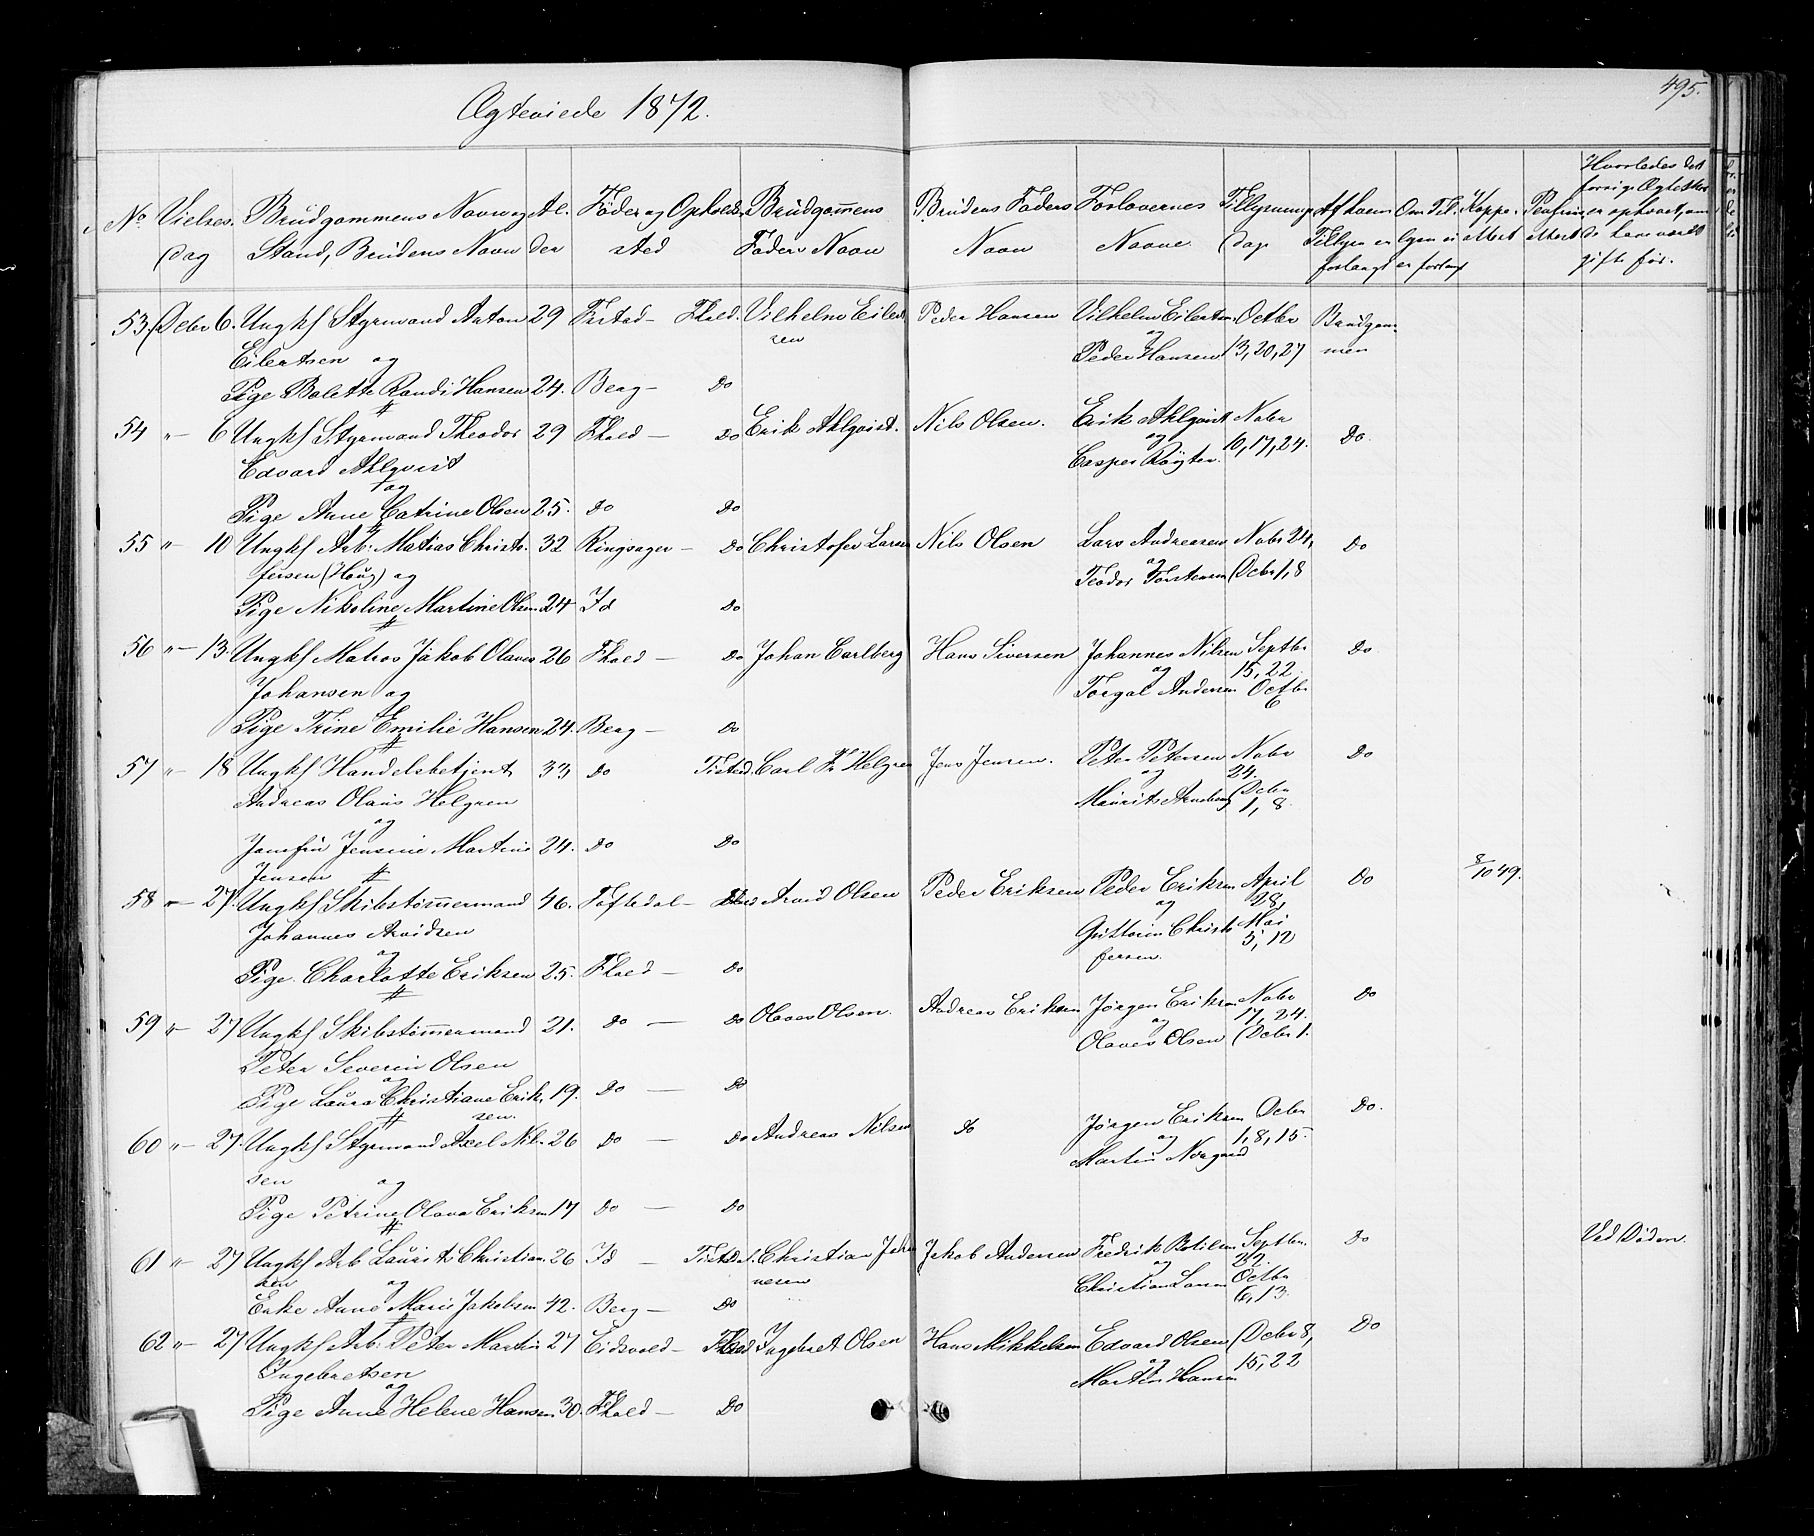 Ægteviede 1872.
495.
No Vielses dag
Brudgommens Navn og Stand, Brudens Navn
Alder
Føde og Opholdssted
Brudgommens Faders Navn
Brudens Faders Navn
Forlovernes Navne
Tillysnings dag
Af hvem Tillysn er forlangt
Om Til lysn ei er forlangt
Koppe attest
attest
Hvorledes det forrige Ægteskab er ophævet, om de have været gifte før.
53 Debr 6. Ungkf Styrmand Anton 29 Tistad — Fhald. Vilhelm Eilert Peder Hansen Vilhelm Eilertsen Octbr Brudgom
Eilertsen og sen og Peder Hansen 13, 20, 27 men
Pige Bolette Randi Hansen 24. Berg — Do
54 " - 6 Ungkf Styrmand Theodor 29 Fhald — Do Erik Ahlqvist. Nils Olsen. Erik Ahlqvist Nobr Do.
Edvard Ahlqvist og Casper 10, 17, 24.
og
Pige Anne Catrine Olsen 25. Do Do
55 " - 10 Ungkf Arb: Matias Christo 32 Ringsager — Do Christofer Larsen Nils Olsen Lars Andreasen Nobr 24, Do
fersen (Haug) og og Teodor Torstensen Debr 1, 8
Pige Nikoline Martine Olsen 24 Id Do
56 " - 13. Ungkf Matros Jakob Olaves 26 Fhald — Do Johan Carlberg Hans Siversen Johannes Nilsen Septbr Do
Johansen og og 15, 22
Torgal Andersen Octbr 6
Pige Trine Emilie Hansen 24. Berg — Do
57 " - 18 Ungkf Handelsbetjent 33, Do Tistad. Carl Fr Helgren Jens Jensen. Peter Petersen Nobr Do
Andreas Olaus Helgren og 24.
og Maurits Arneberg Debr 1, 8.
Jomfru Jensine Martine 24. Do Do
Jensen
58 " - 27. Ungkf Skibstømmermand 46. Toftedal — Fhald Arvid Olsen Peder Eriksen Peder Eriksen April Do 8/10 49.
Johannes Arvidsen og 28,
og Christo Mai
fersen. 5, 12
Pige Charlotte Eriksen 25. Fhald — Do
59 " - 27 Ungkf Skibstømmermand 21. Do — Do Olaves Olsen. Andreas Eriksen Jørgen Eriksen Nobr Do
Peter Severin Olsen og 17, 24.
og Olaves Olsen Debr 1.
Pige Laura Christiane Erik 19. Do — Do
sen.
60 " - 27. Ungkf Styrmand Axel Nil 26 Do — Do Andreas Nilsen Do Jørgen Eriksen Debr Do.
sen og og 1, 8, 15.
Martin Norgaard
Pige Petrine Olava Eriksen 17 Do — Do
61 " - 27 Ungkf Arb Laurits Christian 26 Id — Tistedal. Christian Johan Jakob Andersen Fredrik Septbr. Do Ved Døden.
sen og nesen og 22.
Christian Larsen Octbr
Enke Anne Marie Jakobsen 42. Berg — Do 6, 13.
62 " - 27 Ungkf Arb: Peter Martin 27 Eidsvold — Fhald Ingebret Olsen Hans Mikkelsen Edvard Olsen Debr 8, Do
Ingebretsen og 15, 22
og Martin Hansen
Pige Anne Helene Hansen 30. Fhald — Do